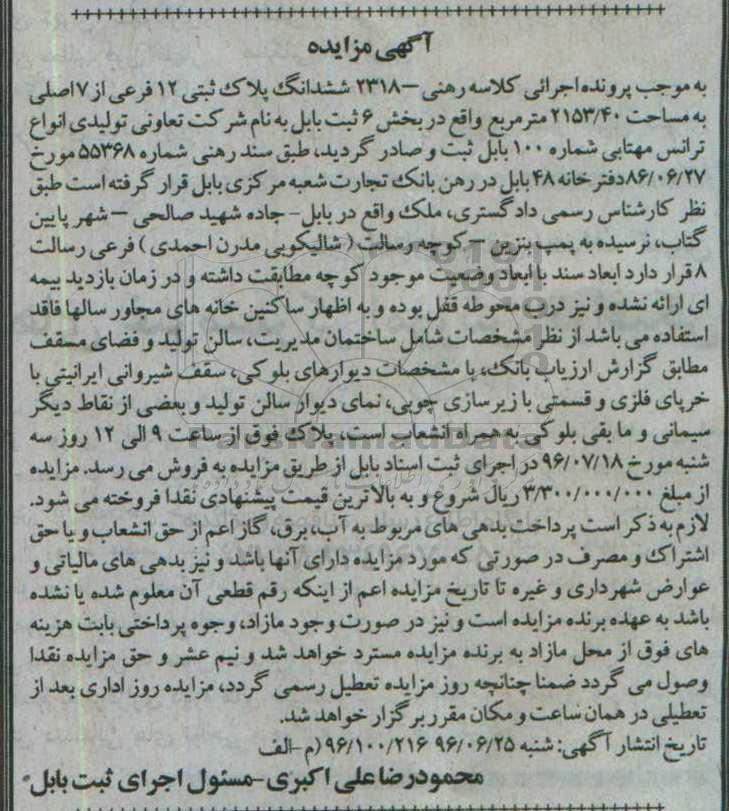 آگهی مزایده
به موجب پرونده اجرائی کلاسه رهنی –۲۳۱۸ ششدانگ پلاک ثبتی ۱۲ فرعی از ۷ اصلی
به مساحت ۲۱۵۳/۴۰ مترمربع واقع در بخش ۶ ثبت بابل به نام شرکت تعاونی تولیدی انواع
ترانس مهتابی شماره ۱۰۰ بابل ثبت و صادر گردید، طبق سند رهنی شماره ۵۵۳۶۸ مورخ
۸۶/۰۶/۲۷ دفترخانه ۴۸ بابل در رهن بانک تجارت شعبه مرکزی بابل قرار گرفته است طبق
نظر کارشناس رسمی دادگستری، ملک واقع در بابل- جاده شهید صالحی – شهر پایین
گتاب، نرسیده به پمپ بنزین – کوچه رسالت ( شالیکوبی مدرن احمدی ) فرعی رسالت
۸ قرار دارد ابعاد سند با ابعاد وضعیت موجود کوچه مطابقت داشته و در زمان بازدید بیمه
ای ارائه نشده و نیز درب محوطه قفل بوده و به اظهار ساکنین خانه های مجاور سالها فاقد
استفاده می باشد از نظر مشخصات شامل ساختمان مدیریت، سالن تولید و فضای مسقف
مطابق گزارش ارزیاب بانک، با مشخصات دیوارهای بلوکی، سقف شیروانی ایرانیتی با
خرپای فلزی و قسمتی با زیرسازی چوبی، نمای دیوار سالن تولید و بعضی از نقاط دیگر
سیمانی و ما بقی بلوکی به همراه انشعاب است، پلاک فوق از ساعت ۹ الی ۱۲ روز سه
شنبه مورخ ۹۶/۰۷/۱۸ در اجرای ثبت اسناد بابل از طریق مزایده به فروش می رسد. مزایده
از مبلغ ۳/۳۰۰/۰۰۰/۰۰۰ ریال شروع و به بالاترین قیمت پیشنهادی نقدا فروخته می شود.
لازم به ذکر است پرداخت بدهی های مربوط به آب، برق، گاز اعم از حق انشعاب و یا حق
اشتراک و مصرف در صورتی که مورد مزایده دارای آنها باشد و نیز بدهی های مالیاتی و
عوارض شهرداری و غیره تا تاریخ مزایده اعم از اینکه رقم قطعی آن معلوم شده یا نشده
باشد به عهده برنده مزایده است و نیز در صورت وجود مازاد، وجوه پرداختی بابت هزینه
های فوق از محل مازاد به برنده مزایده مسترد خواهد شد و نیم عشر و حق مزایده نقدا
وصول می گردد ضمنا چنانچه روز مزایده تعطیل رسمی گردد، مزایده روز اداری بعد از
تعطیلی در همان ساعت و مکان مقرر برگزار خواهد شد.
تاریخ انتشار آگهی: شنبه ۹۶/۰۶/۲۵ ۹۶/۱۰۰/۲۱۶ (م-الف
محمودرضا علی اکبری-مسئول اجرای ثبت بابل
ParsNamadData